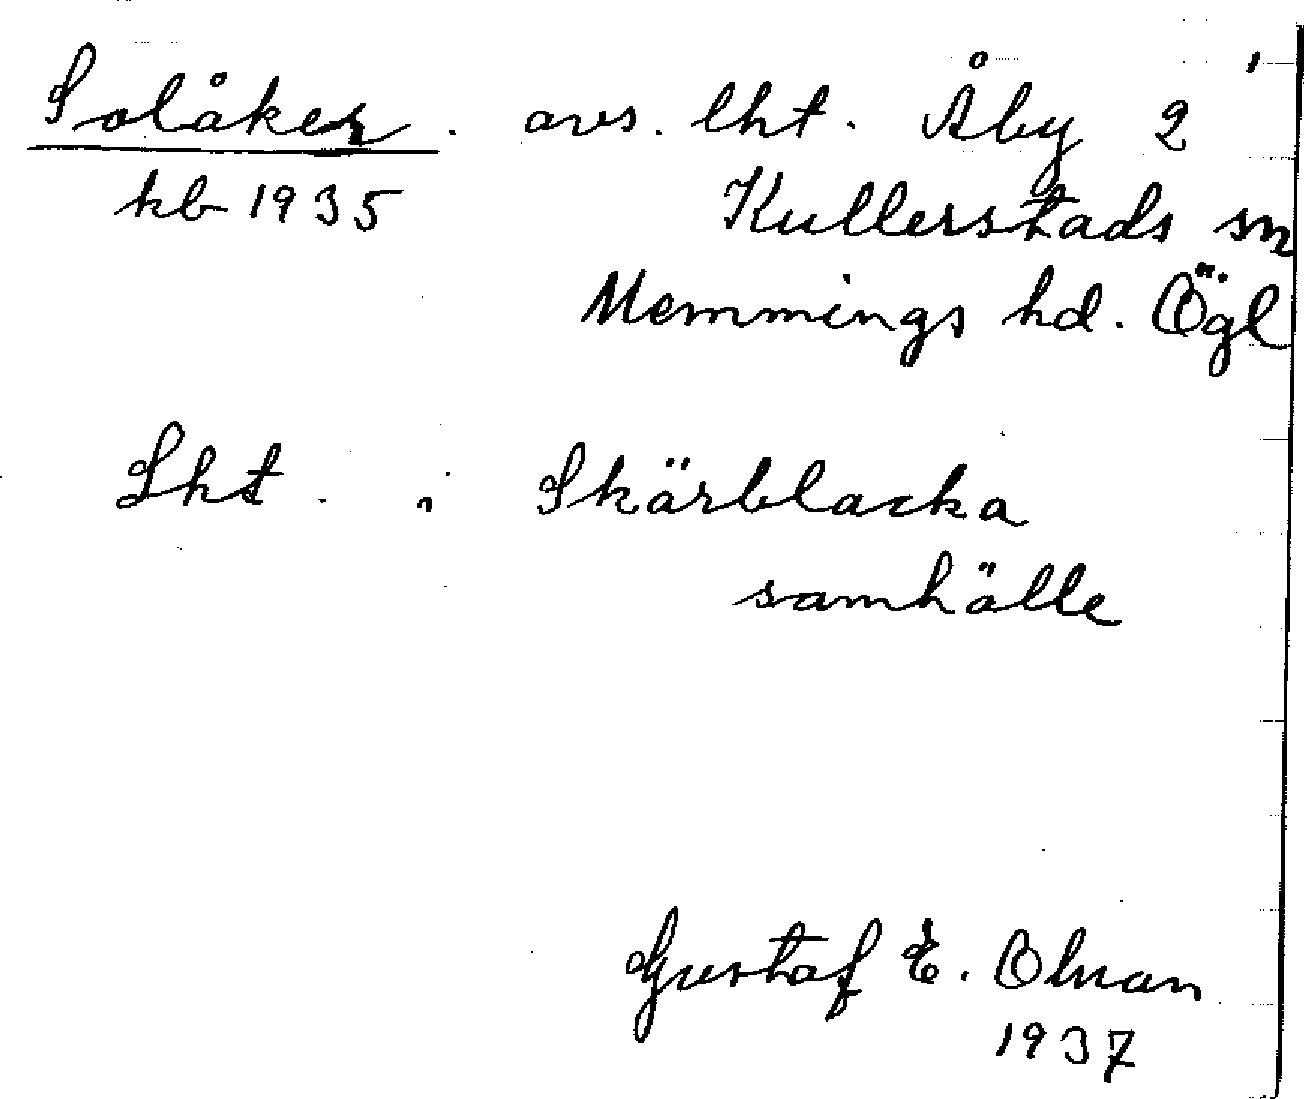 Solåker. avs. lht. Åby 2
kb 1935 Kullerstads sn
Memmings hd. Ögl
Lht. i Skärblacka
samhälle
Gustaf E. Olnan
1937